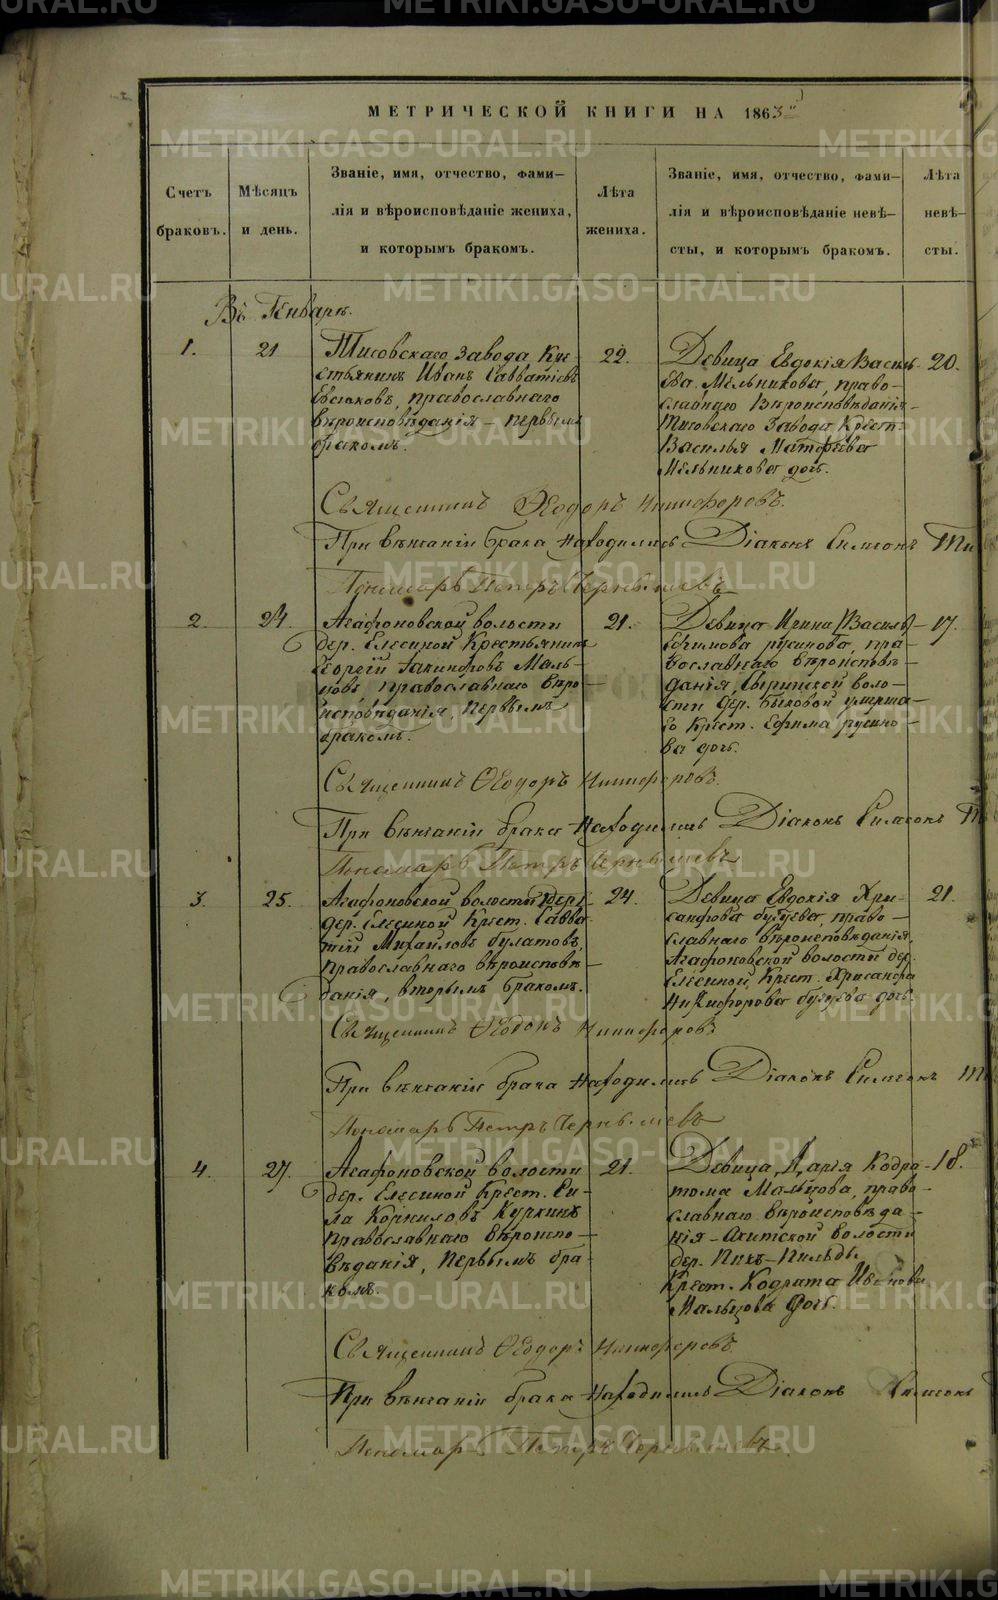 МЕТРИЧЕСКОЙ КНИГИ НА 1863
Счетъ браковъ.
Мѣсяцъ и день.
Званіе, имя, отчество, фами-
лія и вѣроисповѣданіе жениха,
и которымъ бракомъ.
Лѣта жениха.
Званіе, имя, отчество, фами-
лія и вѣроисповѣданіе невѣ-
сты, и которымъ бракомъ.
Лѣта невѣ-
сты.
Въ Генварѣ.
1.
21
Тисовскаго завода Кре-
стьянинъ Иванъ Савватіевъ
православнаго
вѣроисповѣданія – первымъ
бракомъ.
22.
Дѣвица Евдокія Василь-
ева Мельникова, право-
славнаго Вѣроисповѣданія
Тисовскаго Завода Крест.
Василья Матфѣева
Мельникова дочь.
20.
Священникъ Ѳеодоръ Никифоровъ.
При вѣнчаніи брака находились Діаконъ Симеонъ
Пономарь Петръ Чернышевъ
2.
24.
Агафоновской волости
дер. Елесиной Крестьянинъ
Георгій Маль-
цовъ, православнаго вѣро-
исповѣданія, первымъ
бракомъ.
21.
Дѣвица Ирина Василь
Ефимова русинова, пра-
вославнаго вѣроисповѣ-
данія, Сыринской воло-
сти дер. Быковой умерша-
го Крест. Ефима русино-
ва дочь.
17.
Священникъ Ѳеодоръ Никифоровъ.
При вѣнчаніи брака находились Діаконъ Симеонъ
Пономарь Петръ Чернышевъ
3.
25.
Агафоновской волости дер.
дер. Елесиной Крест. Савва-
тій Михайловъ булатовъ,
православнаго вѣроисповѣ-
данія, вторымъ бракомъ.
24.
Дѣвица Евдокія Хри-
санфова бугуева, право-
славнаго вѣроисповѣданія,
Агафоновской волости дер.
Елесиной, Крест. Хрисанфа
Никифорова бугуева дочь.
21.
Священникъ Ѳеодоръ Никифоровъ.
При вѣнчаніи брака находились Діаконъ Симеонъ
Пономарь Петръ Чернышевъ
4.
27.
Агафоновской волости
дер. Елесиной Крест. Си-
ла Корниловъ Куркинъ
православнаго вѣроиспо-
вѣданія, первымъ бра-
комъ.
21.
Дѣвица, Дарія Кодра-
това Мальцова, право-
славнаго вѣроисповѣда-
нія – Ахитской волости
дер.
Крест. Кодрата Иванова
Мальцова дочь.
18.
Священникъ Ѳеодоръ Никифоровъ
При вѣнчаніи брака находились Діаконъ Симеонъ
Пономарь Петръ Чернышевъ.
METRIKI.GASO-URAL.RU